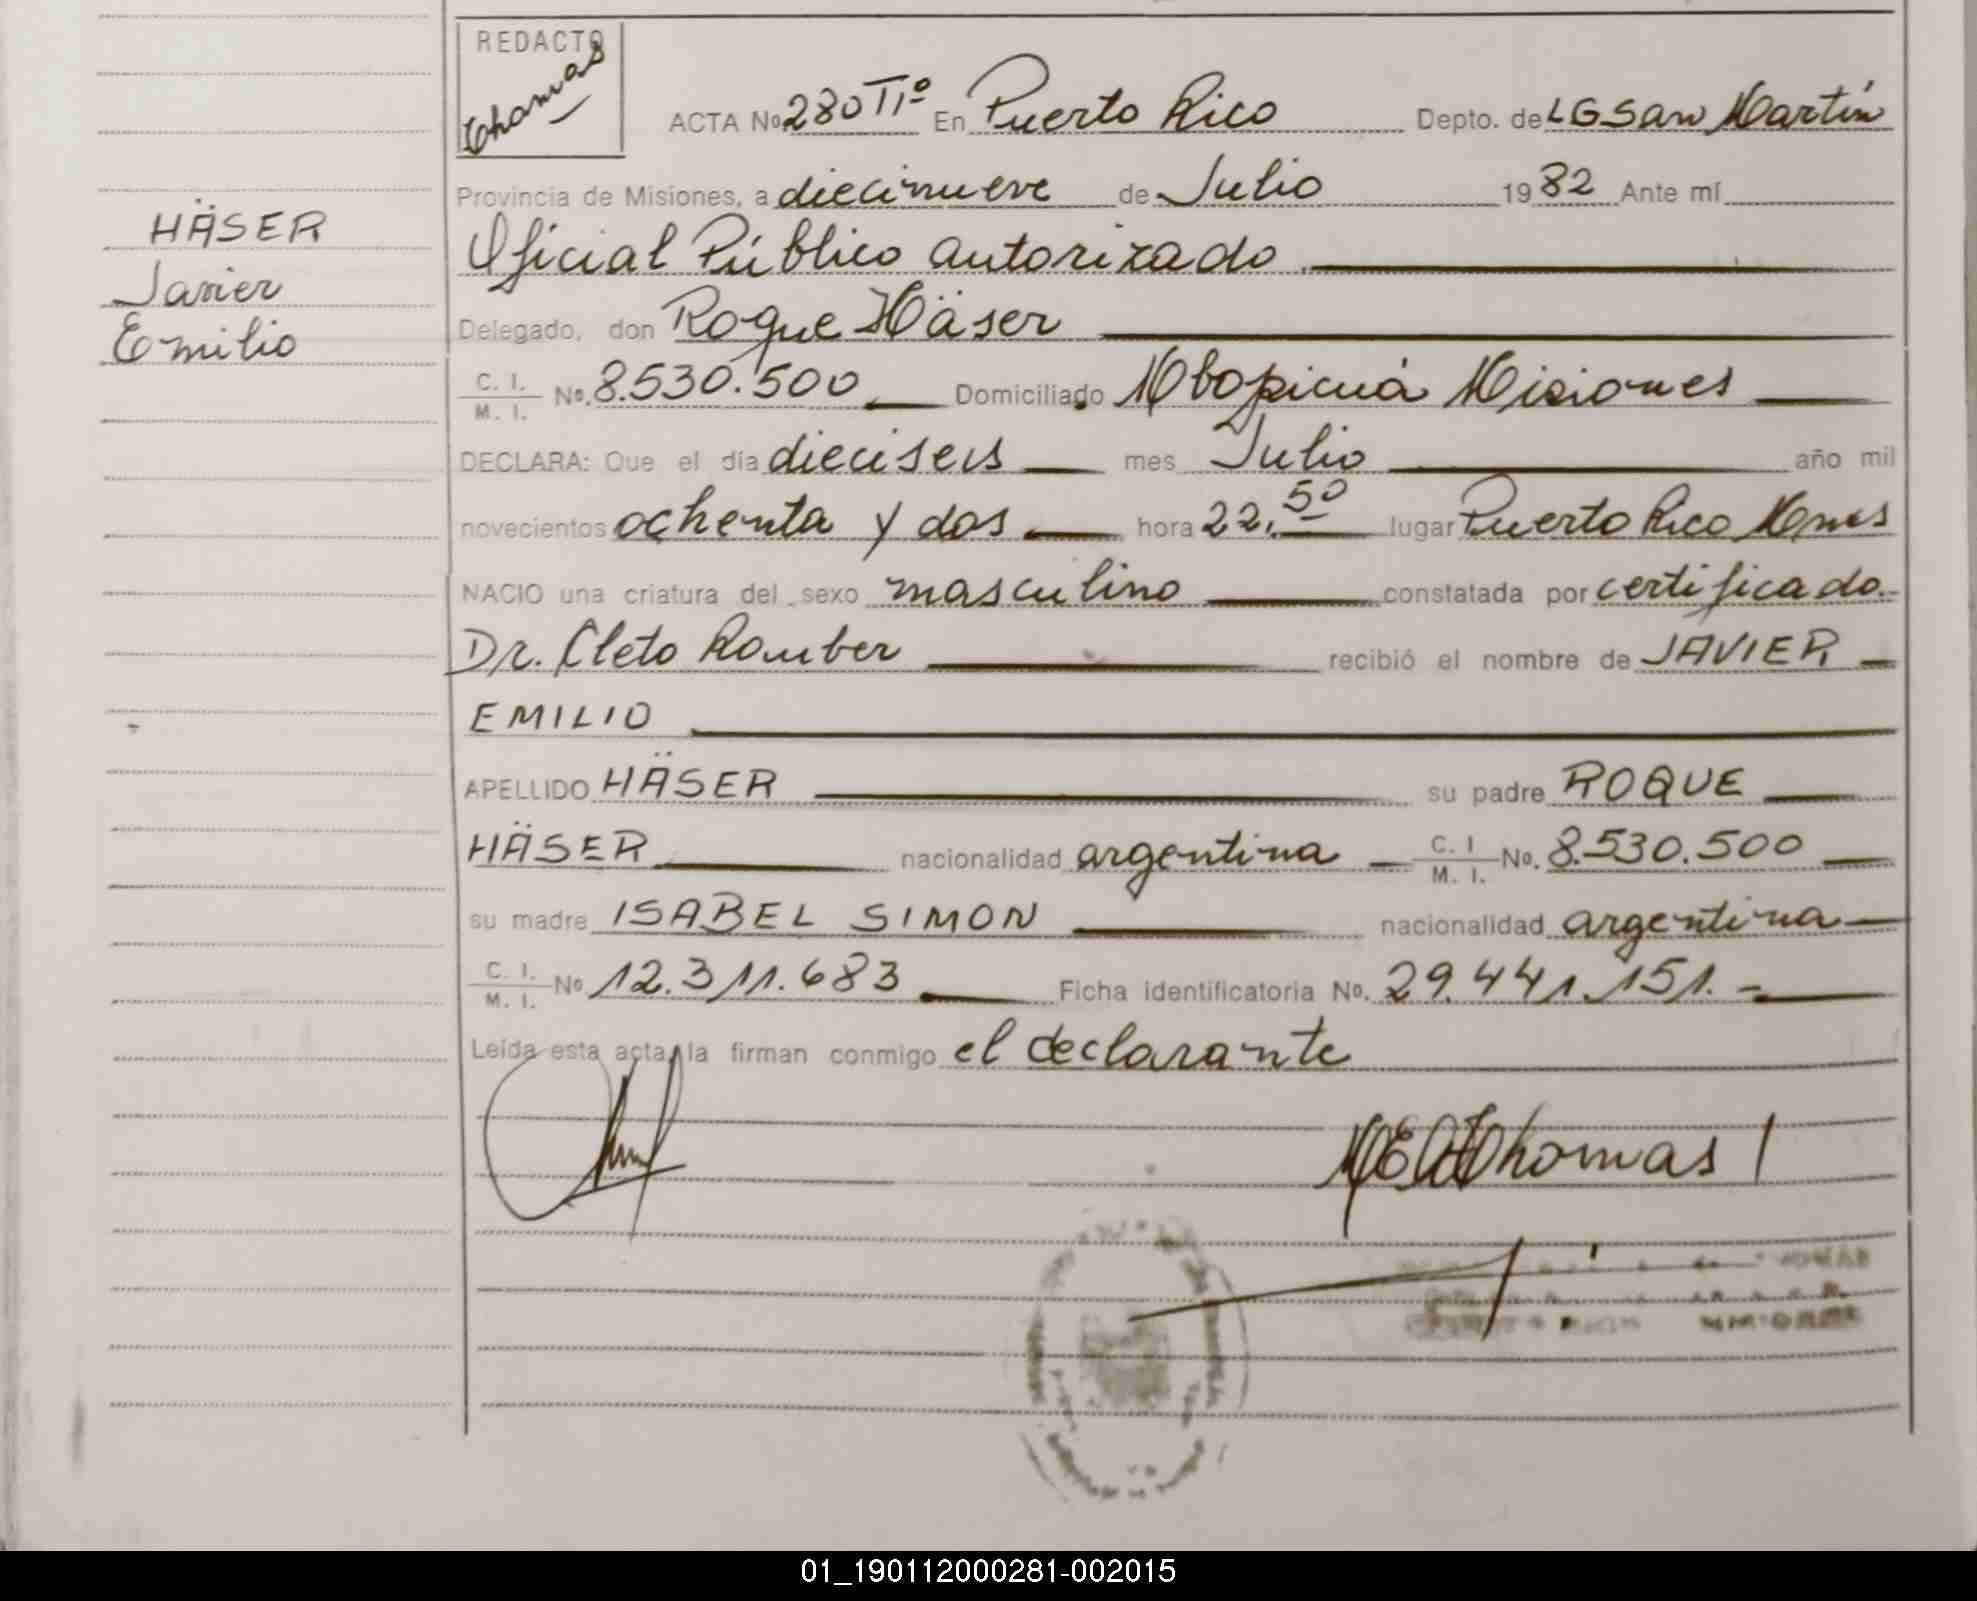 REDACTO
Thomas
ACTA No 280 Tº 1º En Puerto Rico Depto. de LG San Martín
Provincia de Misiones, a diecinueve de Julio 1982 Ante mí
Oficial Público autorizado
Delegado, don Roque Häser
C. I. / M. I. No. 8.530.500 Domiciliado Mbopicuá Misiones
DECLARA: Que el día dieciseis mes Julio año mil
novecientos ochenta y dos hora 22.50 lugar Puerto Rico Mnes
NACIO una criatura del sexo masculino constatada por certificado
Dr. Cleto Romber recibió el nombre de JAVIER
EMILIO
APELLIDO HÄSER su padre ROQUE
HÄSER nacionalidad argentina C. I. / M. I. No. 8.530.500
su madre ISABEL SIMON nacionalidad argentina
C. I. / M. I. No 12.311.683 Ficha identificatoria No. 29.441.151.-
Leída esta acta, la firman conmigo el declarante
Thomas
HÄSER
Javier
Emilio
01_190112000281-002015